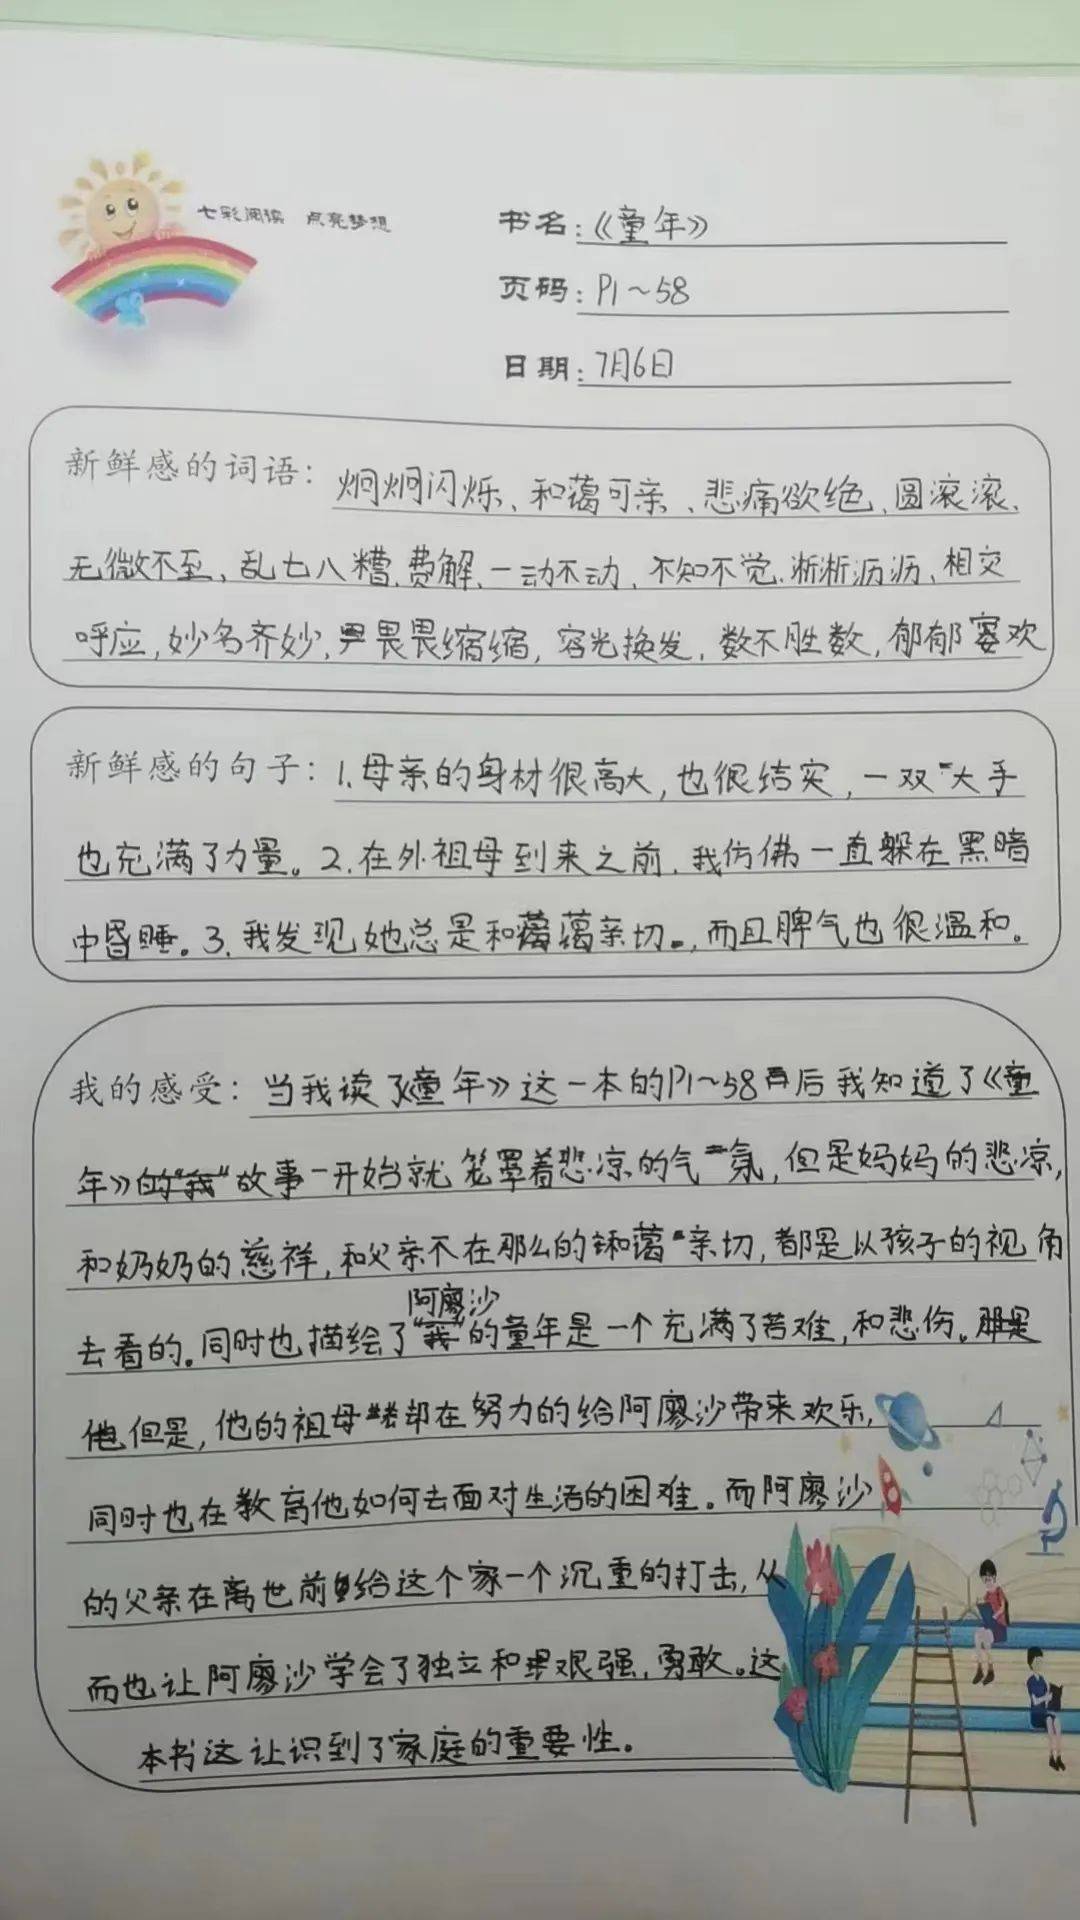 七彩阅读 点亮梦想
书名：《童年》
页码：P1～58
日期：7月6日
新鲜感的词语：炯炯闪烁、和蔼可亲、悲痛欲绝、圆滚滚、
无微不至、乱七八糟、费解、一动不动、不知不觉、淅淅沥沥、相交
呼应，妙名齐妙，畏畏缩缩，容光换发，数不胜数，郁郁寡欢
新鲜感的句子：1.母亲的身材很高大，也很结实，一双大手
也充满了力量。2.在外祖母到来之前，我仿佛一直躲在黑暗
中昏睡。3.我发现她总是和蔼亲切，而且脾气也很温和。
我的感受：当我读了《童年》这一本的P1～58后我知道了《童
年》故事一开始就笼罩着悲凉的气氛，但是妈妈的悲凉，
和奶奶的慈祥，和父亲不在那么的和蔼亲切，都是以孩子的视角
去看的。同时也描绘了阿廖沙的童年是一个充满了苦难，和悲伤。
但是，他的祖母却在努力的给阿廖沙带来欢乐，
同时也在教育他如何去面对生活的困难。而阿廖沙
的父亲在离世前给这个家一个沉重的打击，从
而也让阿廖沙学会了独立和艰强，勇敢。这
本书这让识到了家庭的重要性。